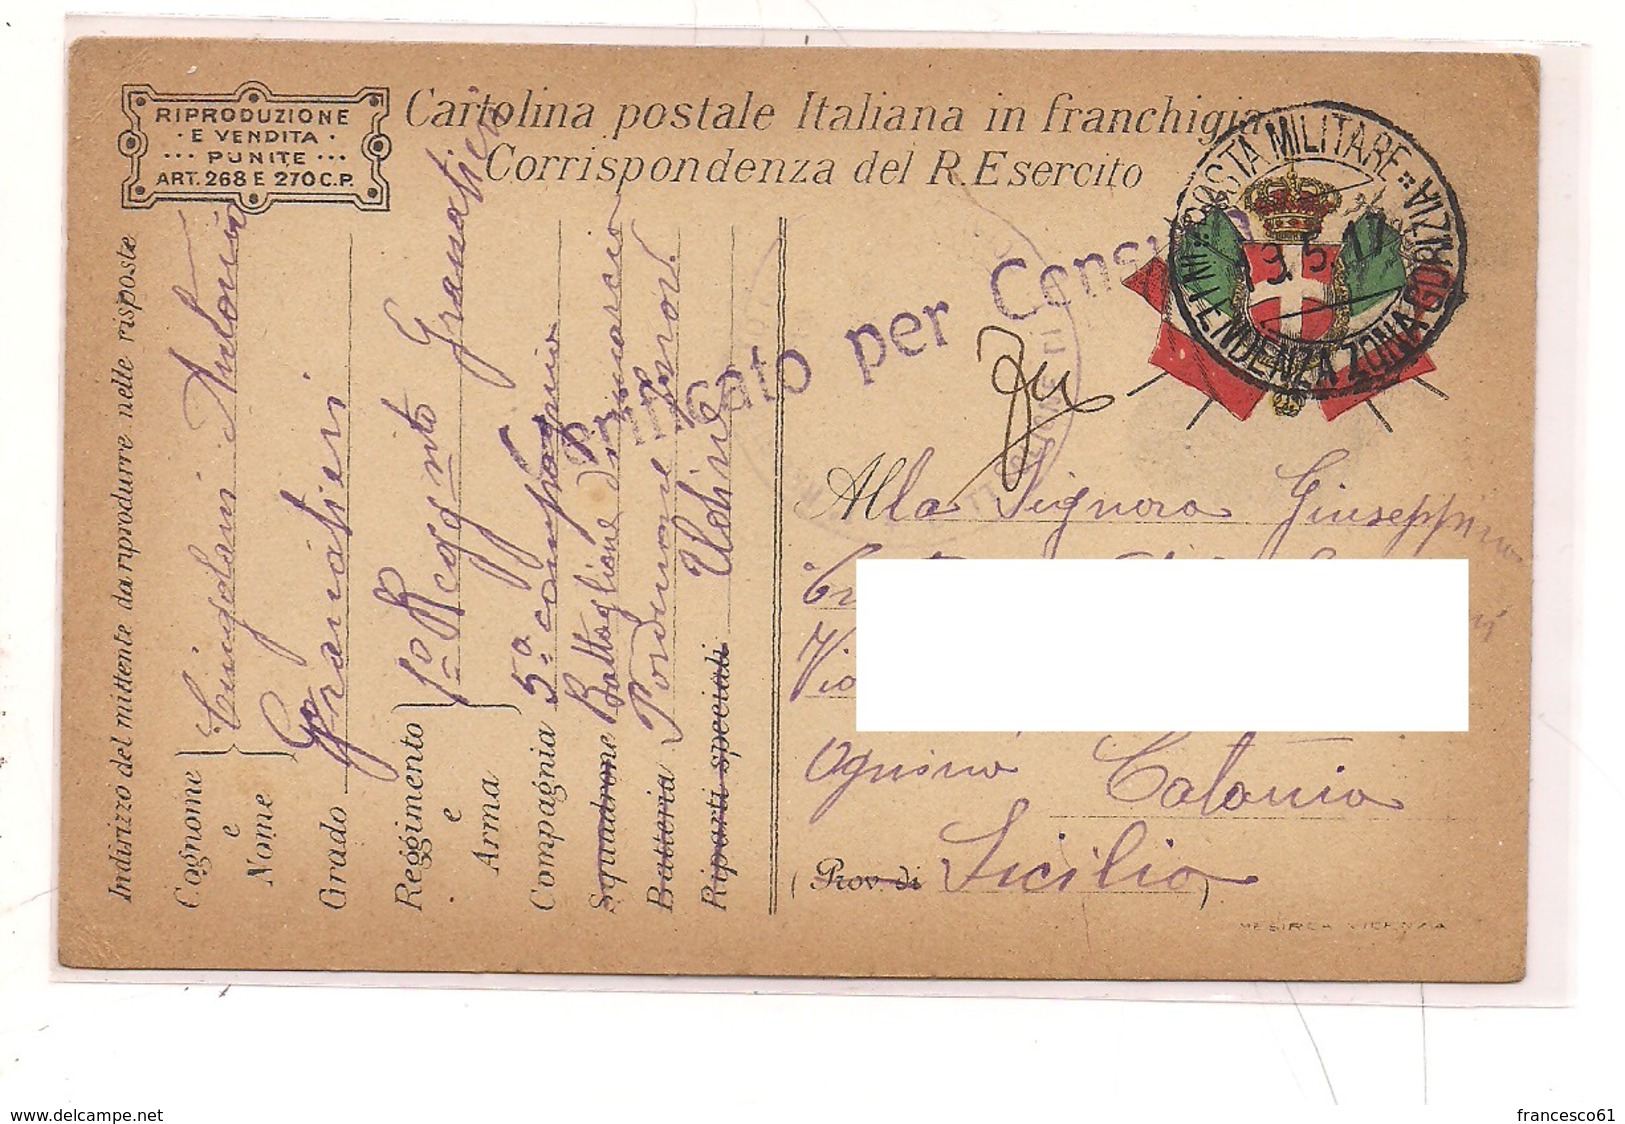 RIPRODUZIONE
· E VENDITA ·
··· PUNITE ···
ART. 268 E 270 C.P.
Cartolina postale Italiana in franchigia
Corrispondenza del R. Esercito
POSTA MILITARE
INTENDENZA ZONA GORIZIA
13.5.17
Verificato per Censura
Indirizzo del mittente da riprodurre nelle risposte
Cognome e Nome Antonio
Grado Granatieri
Reggimento e Arma 1º Reggnto Granatieri
Compagnia 5ª compagnia
Squadrone Battaglione
Batteria
Riparti speciali Udine
Alla Signora Giuseppina
Via
Ognina Catania
(Prov. di Sicilia)
MESIRCA VICENZA
www.delcampe.net
francesco61